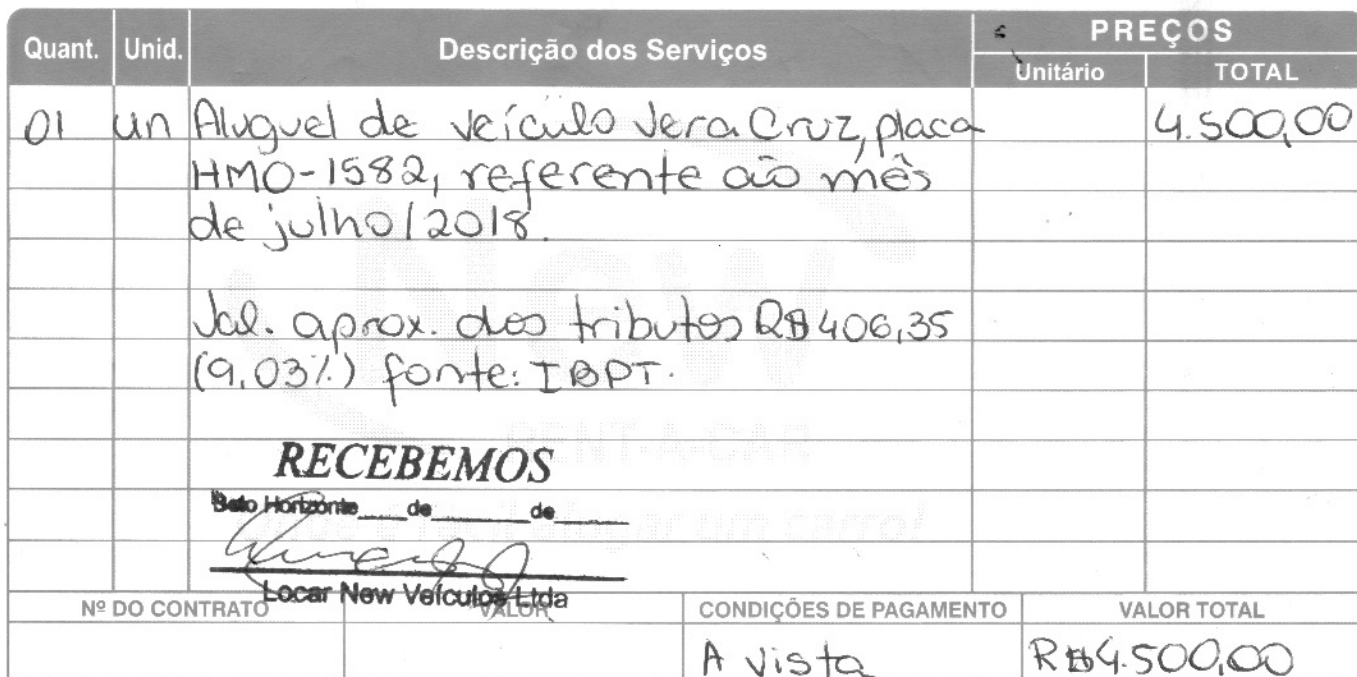 Quant. Unid. Descrição dos Serviços PREÇOS
Unitário TOTAL
01 un Aluguel de veículo Vera Cruz, placa 4.500,00
HMO-1582, referente ao mês
de julho/2018.
Val. aprox. dos tributos R$406,35
(9,03%) fonte: IBPT.
RENT-A-CAR
RECEBEMOS
Belo Horizonte____de________de_____
alugar um carro!
Locar New Veículos Ltda
Nº DO CONTRATO VALOR CONDIÇÕES DE PAGAMENTO VALOR TOTAL
A vista R$4.500,00